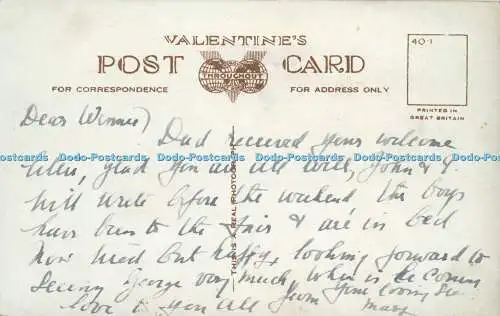 VALENTINE'S
POST CARD
THROUGHOUT
FOR CORRESPONDENCE
FOR ADDRESS ONLY
40-1
PRINTED IN
GREAT BRITAIN
THIS IS A REAL PHOTOGRAPH
Dear Winnie
Dad received your welcome
letter, glad you are all well, John & I
will write before the weekend the boys
have been to the fair & are in bed
now tired but happy, looking forward to
seeing George very much, when is he coming
love to you all from your loving Sis
Mary
Dodo-Postcards Dodo-Postcards Dodo-Postcards Dodo-Postcards Dodo-Postcards